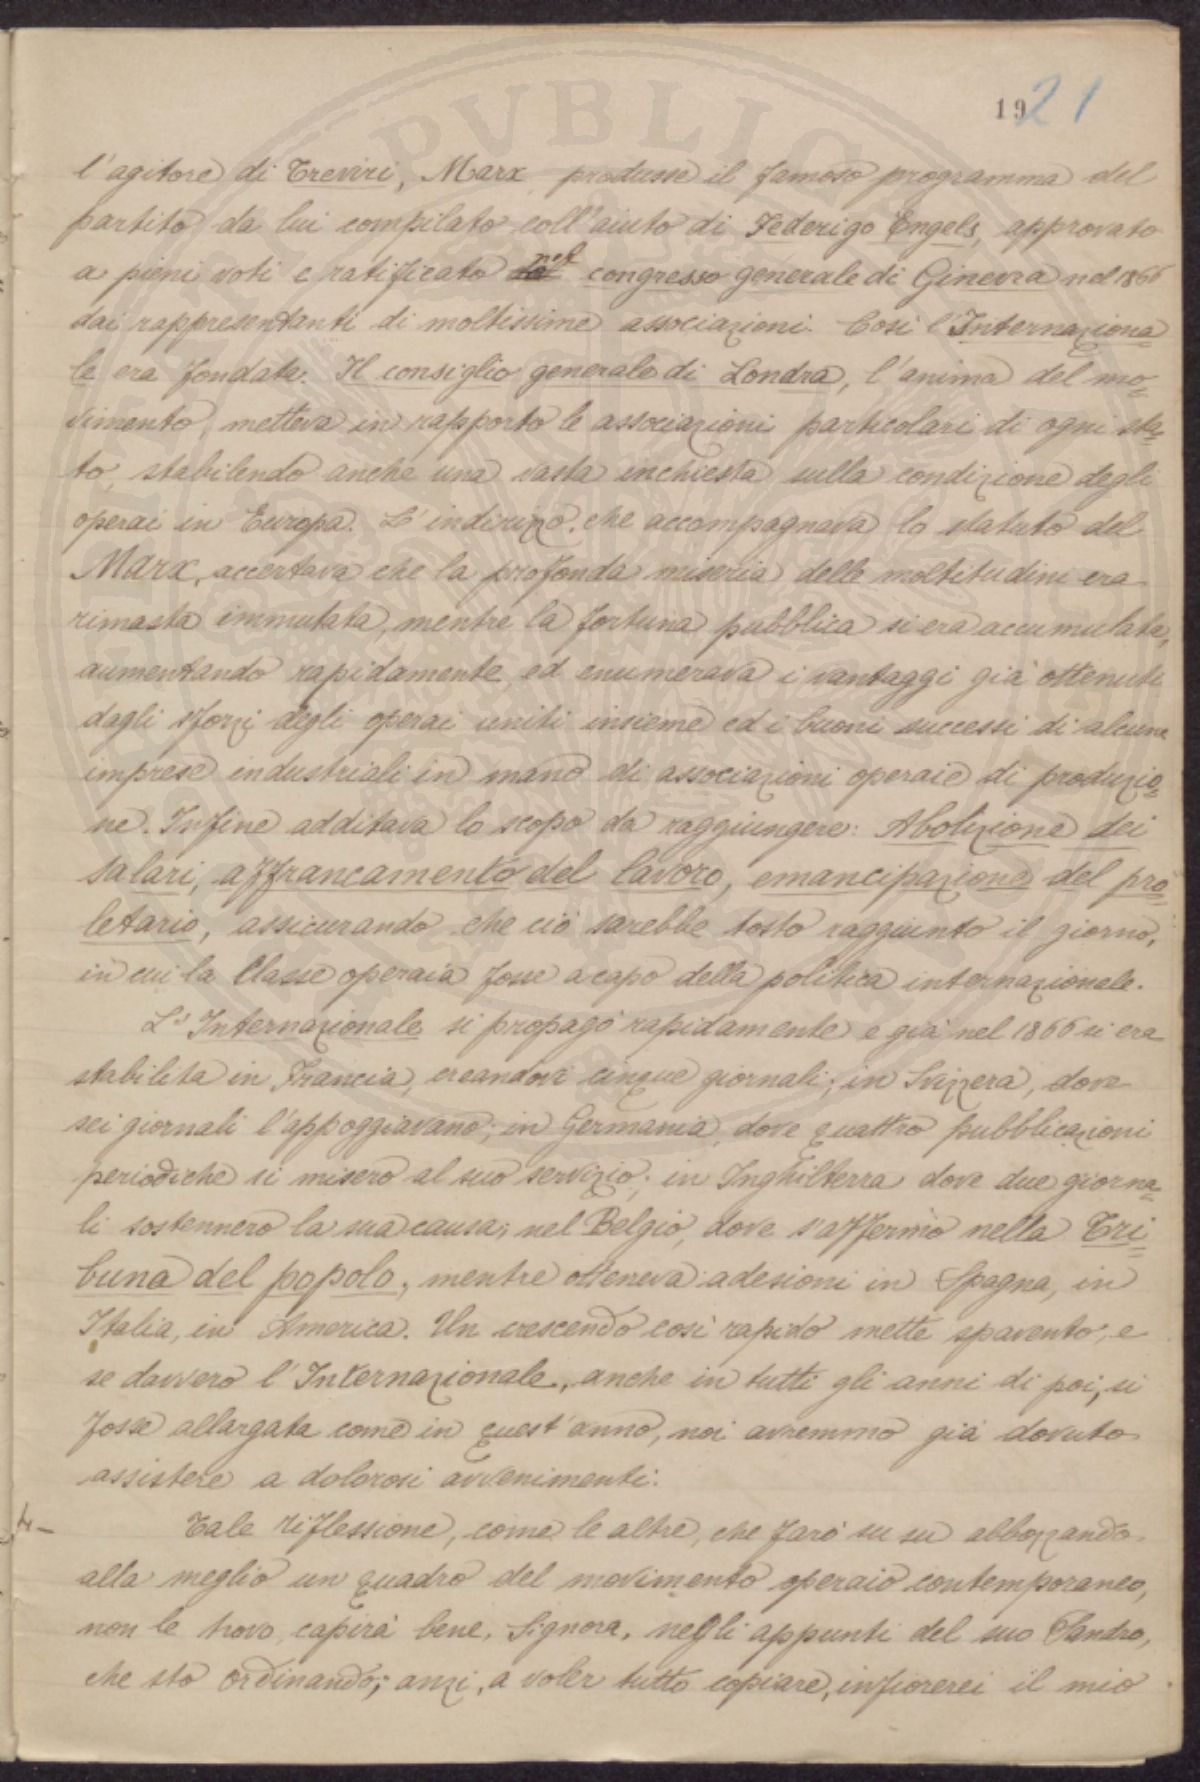 PVBLICA
19 21
l'agitore di Treviri, Marx, produsse il famoso programma del
partito da lui compilato coll'aiuto di Federigo Engels, approvato
a pieni voti e ratificato nel congresso generale di Ginevra nel 1866
dai rappresentanti di moltissime associazioni. Così l'Internaziona=
le era fondata. Il consiglio generale di Londra, l'anima del mo=
vimento, metteva in rapporto le associazioni particolari di ogni sta=
to, stabilendo anche una vasta inchiesta sulla condizione degli
operai in Europa. L'indirizzo, che accompagnava lo statuto del
Marx, accertava che la profonda miseria delle moltitudini era
rimasta immutata, mentre la fortuna pubblica si era accumulata,
aumentando rapidamente, ed enumerava i vantaggi già ottenuti
dagli sforzi degli operai uniti insieme ed i buoni successi di alcune
imprese industriali in mano di associazioni operaie di produzio=
ne. Infine additava lo scopo da raggiungere: Abolizione dei
salari, affrancamento del lavoro, emancipazione del pro=
letario, assicurando che ciò sarebbe tosto raggiunto il giorno,
in cui la Classe operaia fosse a capo della politica internazionale.
L'Internazionale si propagò rapidamente e già nel 1866 si era
stabilita in Francia, creandovi cinque giornali; in Svizzera, dove
sei giornali l'appoggiavano; in Germania, dove quattro pubblicazioni
periodiche si misero al suo servizio; in Inghilterra dove due giorna=
li sostennero la sua causa; nel Belgio, dove s'affermò nella Tri=
buna del popolo, mentre otteneva adesioni in Spagna, in
Italia, in America. Un crescendo così rapido mette spavento; e
se davvero l'Internazionale, anche in tutti gli anni di poi, si
fosse allargata come in quest'anno, noi avremmo già dovuto
assistere a dolorosi avvenimenti.
Tale riflessione, come le altre, che farò su su abbozzando
alla meglio un quadro del movimento operaio contemporaneo,
non le trovo, capirà bene, Signora, negli appunti del suo Sandro,
che sto ordinando; anzi, a voler tutto copiare, infiorerei il mio